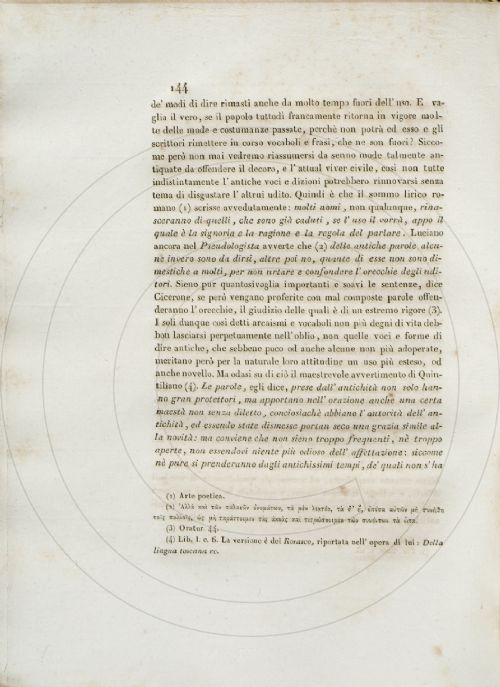 144
de' modi di dire rimasti anche da molto tempo fuori dell' uso. E va-
glia il vero, se il popolo tuttodì francamente ritorna in vigore mol-
te delle mode e costumanze passate, perchè non potrà ed esso e gli
scrittori rimettere in corso vocaboli e frasi, che ne son fuori? Sicco-
me però non mai vedremo riassumersi da senno mode talmente an-
tiquate da offendere il decoro, e l' attual viver civile, così non tutte
indistintamente l' antiche voci e dizioni potrebbero rinnovarsi senza
tema di disgustare l' altrui udito. Quindi è che il sommo lirico ro-
mano (1) scrisse avvedutamente: molti nomi, non qualunque, rina-
sceranno di quelli, che sono già caduti, se l' uso il vorrà, appo il
quale è la signoria e la ragione e la regola del parlare. Luciano
ancora nel Pseudologista avverte che (2) delle antiche parole alcu-
ne invero sono da dirsi, altre poi no, quante di esse non sono di-
mestiche a molti, per non urtare e confondere l' orecchie degli udi-
tori. Sieno pur quantosivoglia importanti e soavi le sentenze, dice
Cicerone, se però vengano proferite con mal composte parole offen-
deranno l' orecchie, il giudizio delle quali è di un estremo rigore (3).
I soli dunque così detti arcaismi e vocaboli non più degni di vita deb-
bon lasciarsi perpetuamente nell' oblio, non quelle voci e forme di
dire antiche, che sebbene poco od anche alcune non più adoperate,
meritano però per la naturale loro attitudine un uso più esteso, od
anche novello. Ma odasi su di ciò il maestrevole avvertimento di Quin-
tiliano (4). Le parole, egli dice, prese dall' antichità non solo han-
no gran protettori, ma apportano nell' orazione anche una certa
maestà non senza diletto, conciosiachè abbiano l' autorità dell' an-
tichità, ed essendo state dismesse portan seco una grazia simile al-
la novità: ma conviene che non sieno troppo frequenti, nè troppo
aperte, non essendovi niente più odioso dell' affettazione: siccome
nè pure si prenderanno dagli antichissimi tempi, de' quali non s' ha
(1) Arte poetica.
(2) Ἀλλὰ καὶ τῶν παλαιῶν ὀνομάτων, τὰ μὲν λεκτέα, τὰ δ' οὔ, ὁπόσα αὐτῶν μὴ συνήθη
τοῖς πολλοῖς, ὡς μὴ ταράττοιμεν τὰς ἀκοὰς καὶ τιτρώσκοιμεν τῶν συνόντων τὰ ὦτα.
(3) Orator 44.
(4) Lib. I. c. 6. La versione è dei Rosasco, riportata nell' opera di lui: Della
lingua toscana ec.